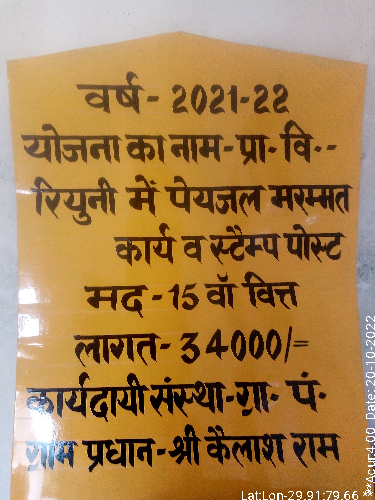 वर्ष- 2021-22
योजना का नाम- प्रा- वि--
रियुनी में पेयजल मरम्मत
कार्य व स्टैम्प पोस्ट
मद - 15 वॉ वित्त
लागत- 34000/=
कार्यदायी संस्था-ग्रा- पं-
ग्राम प्रधान-श्री कैलाश राम
LatLon-29.91:79.66
**Acur:4.00 Date: 20-10-2022